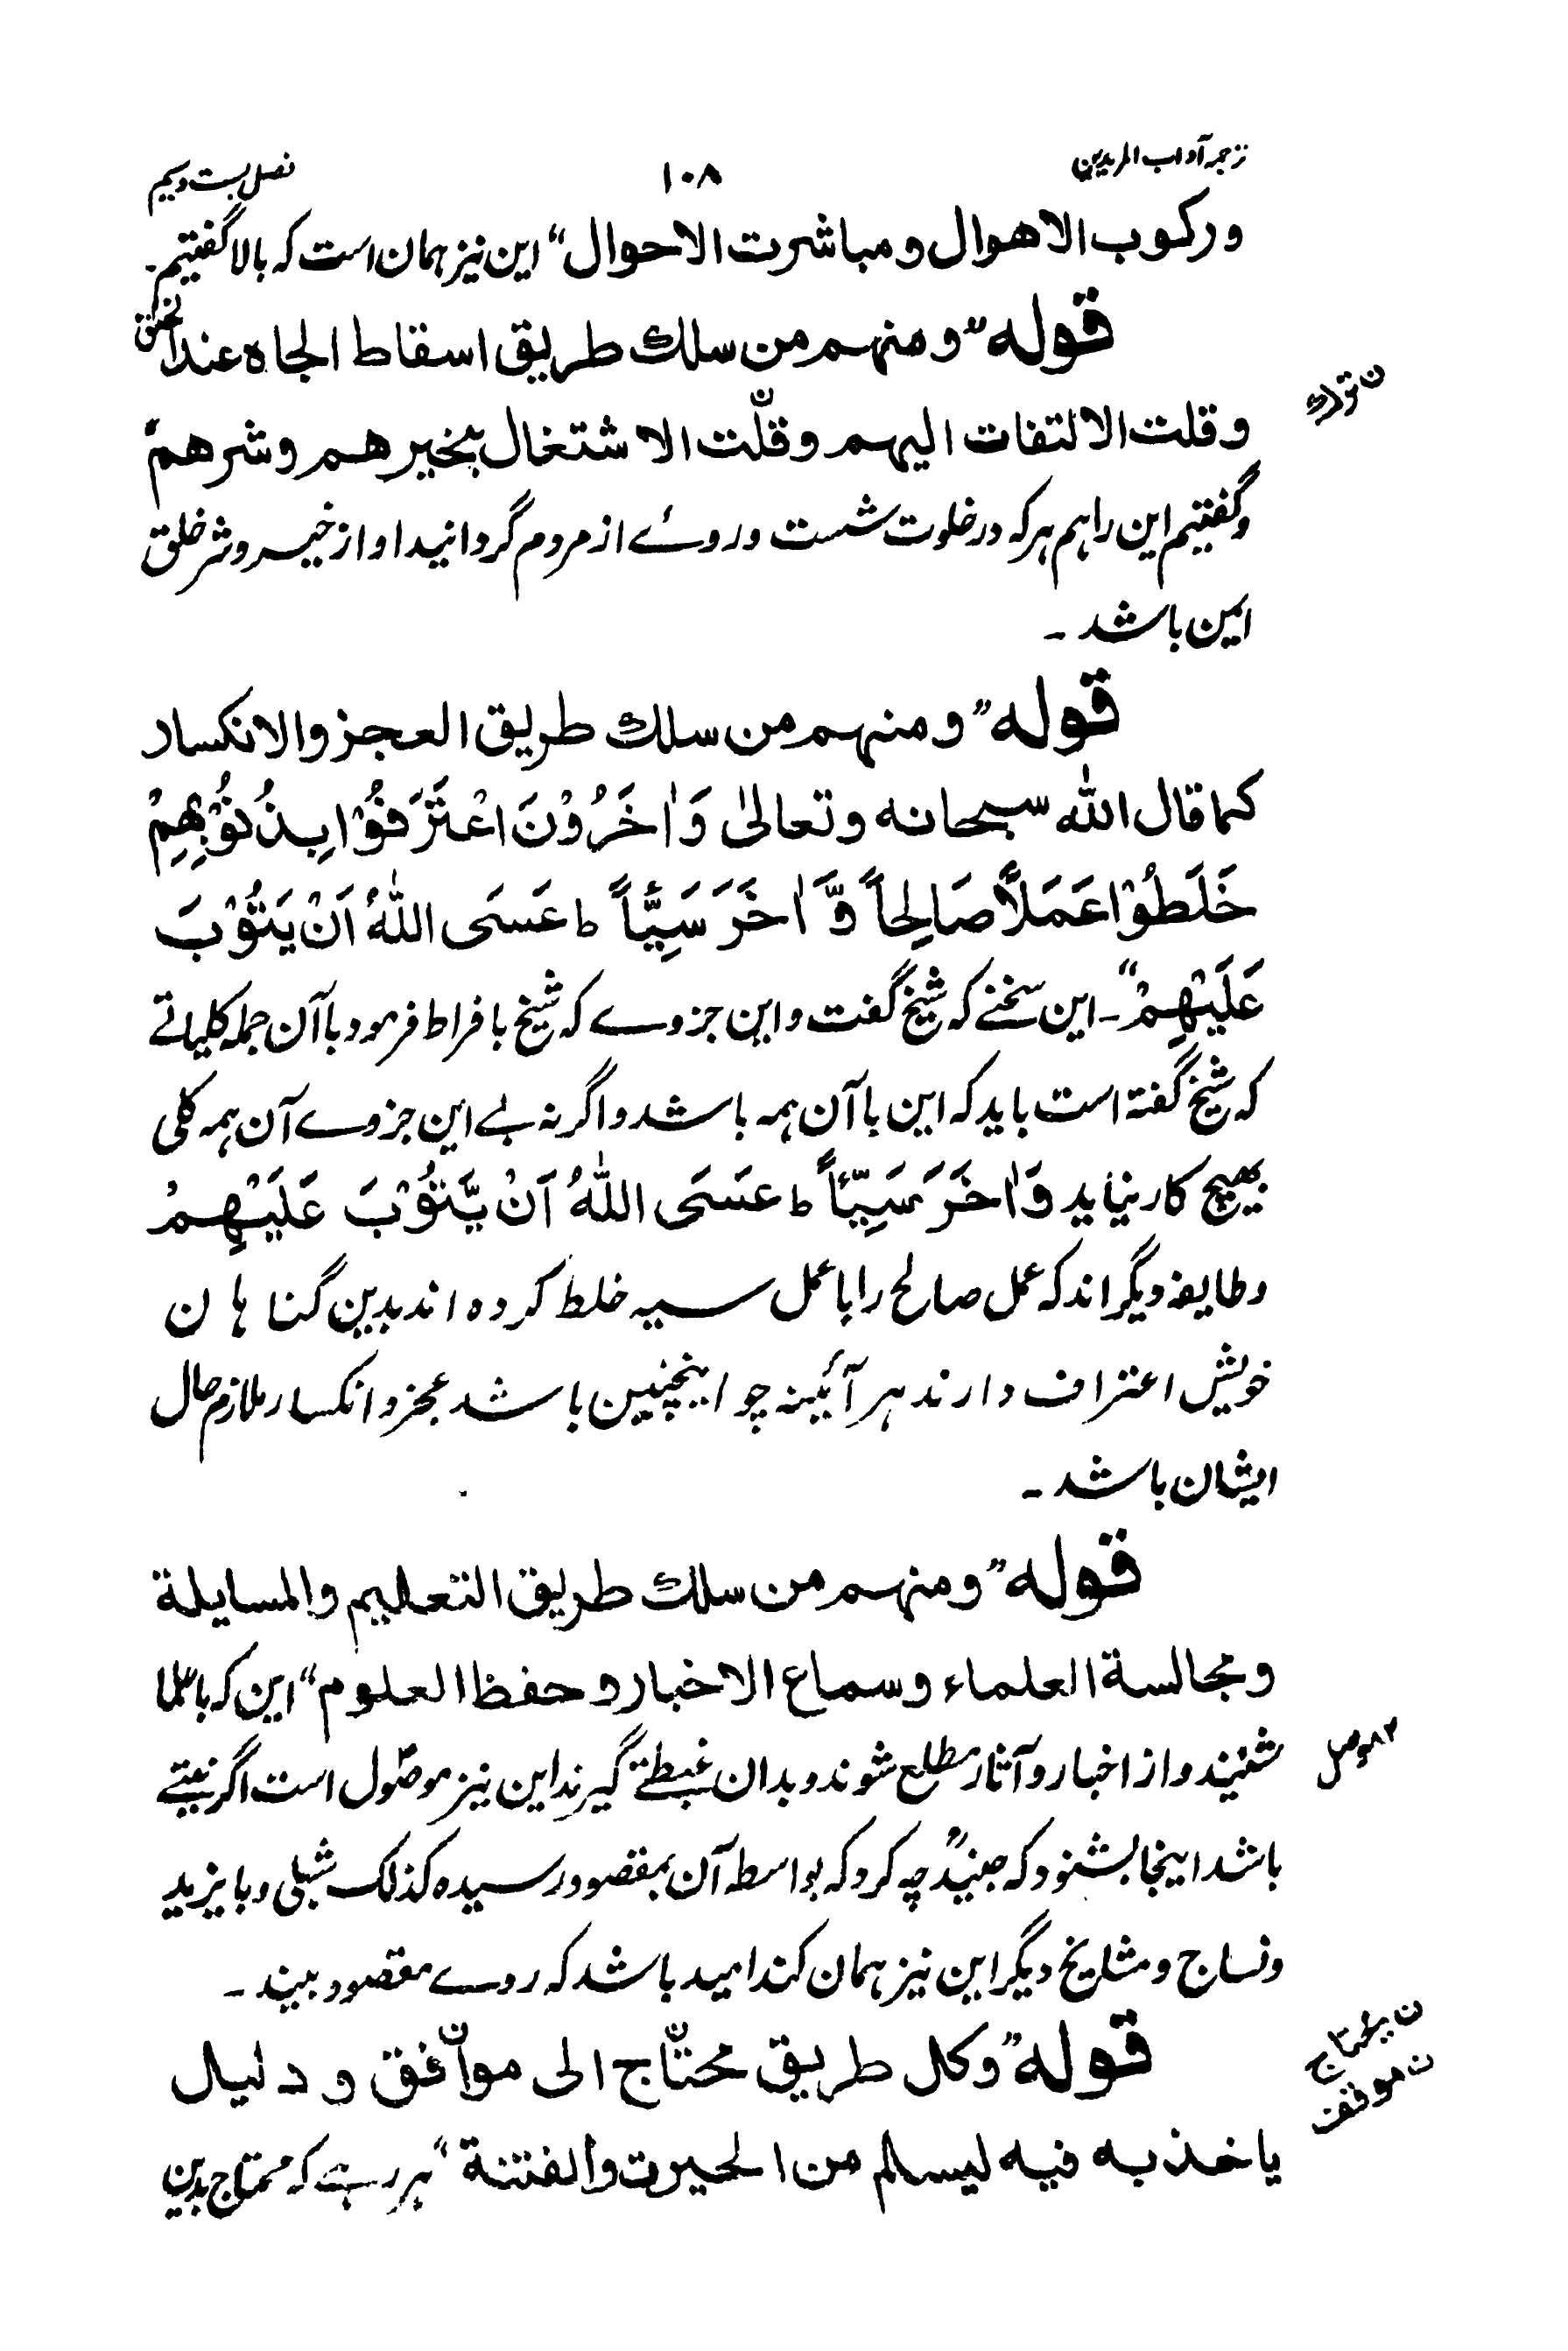 ترجمہ آداب المریدین
۱۰۸
فصل بست ویکم
ورکوب الاهوال ومباشرت الاحوال“ این نیز ہمان است کہ بالا گفتیم۔
قوله ”ومنهم من سلك طريق اسقاط الجاه عند الخلق
وقلت الالتفات اليهم وقلّت الاشتغال بخيرهم وشرهم“
وگفتیم این را ہم ہرکہ در خلوت شست وروئے از مردم گردانید او از خیر وشر خلق
ایمن باشد ۔
قوله ”ومنهم من سلك طريق العجز والانكسار
كما قال الله سبحانه وتعالىٰ وَاٰخَرُوْنَ اعْتَرَفُوْا بِذُنُوْبِهِمْ
خَلَطُوْا عَمَلاً صَالِحاً وَّاٰخَرَ سَيِّئاً ط عَسَى اللهُ اَنْ يَتُوْبَ
عَلَيْهِمْ“۔ این سخنے کہ شیخ گفت واین جزوے کہ شیخ بافراط فرمود باآن جملہ کلیاتے
کہ شیخ گفتہ است باید کہ این باآن ہمہ باشد واگرنہ بے این جزوے آن ہمہ کلی
بهیچ کار نیاید وَاٰخَرَ سَيِّئاً ط عَسَى اللهُ اَنْ يَّتُوْبَ عَلَيْهِمْ
وطایفہ دیگر اند کہ عمل صالح را با عمل سیہ خلط کردہ اند بدین گناہان
خویش اعتراف دارند ہر آئینہ چو اینچنین باشد عجز وانکسار ملازم حال
ایشان باشد ۔
قوله ”ومنهم من سلك طريق التعليم والمسايلة
ومجالسة العلماء وسماع الاخبار وحفظ العلوم“ این کہ باعلما
شنیند واز اخبار وآثار مطلع شوند وبدان غبطتے گیرند این نیز موصول است اگر نیتے
باشد اینجا بشنود کہ جنیدؒ چہ کرد کہ بواسطہ آن بمقصود رسیدہ کذلک شبلی وبایزید
ونساج ومشایخ دیگر این نیز ہمان کند امید باشد کہ روے مقصود بیند ۔
قوله ”وكل طريق محتاج الى موافق ودليل
ياخذ به فيه ليسلم من الحيرت والفتنة“ ہر رہے کہ محتاج بدین
۲ موصل
ن یحتاج
ن موقف